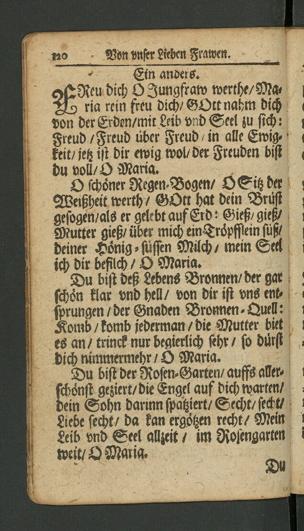 120 Von vnser Lieben Frawen.
Ein anders.
FReu dich O Jungfraw werthe/ Ma-
ria rein freu dich/ GOtt nahm dich
von der Erden/ mit Leib vnd Seel zu sich:
Freud/ Freud über Freud/ in alle Ewig-
keit/ jetz ist dir ewig wol/ der Freuden bist
du voll/ O Maria.
O schöner Regen-Bogen/ O Sitz der
Weißheit werth/ GOtt hat dein Brüst
gesogen/ als er gelebt auf Erd: Gieß/ gieß/
Mutter gieß/ über mich ein Tröpfflein süß/
deiner Hönig-süssen Milch/ mein Seel
ich dir befilch/ O Maria.
Du bist deß Lebens Bronnen/ der gar
schön klar vnd hell/ von dir ist vns ent-
sprungen/ der Gnaden Bronnen-Quell:
Komb/ komb jederman/ die Mutter biet
es an/ trinck nur begierlich sehr/ so dürst
dich nimmermehr/ O Maria.
Du bist der Rosen-Garten/ auffs aller-
schönst geziert/ die Engel auf dich warten/
dein Sohn darinn spatziert/ Secht/ secht/
Liebe secht/ da kan ergötzen recht/ Mein
Leib vnd Seel allzeit/ im Rosengarten
weit/ O Maria.
Du